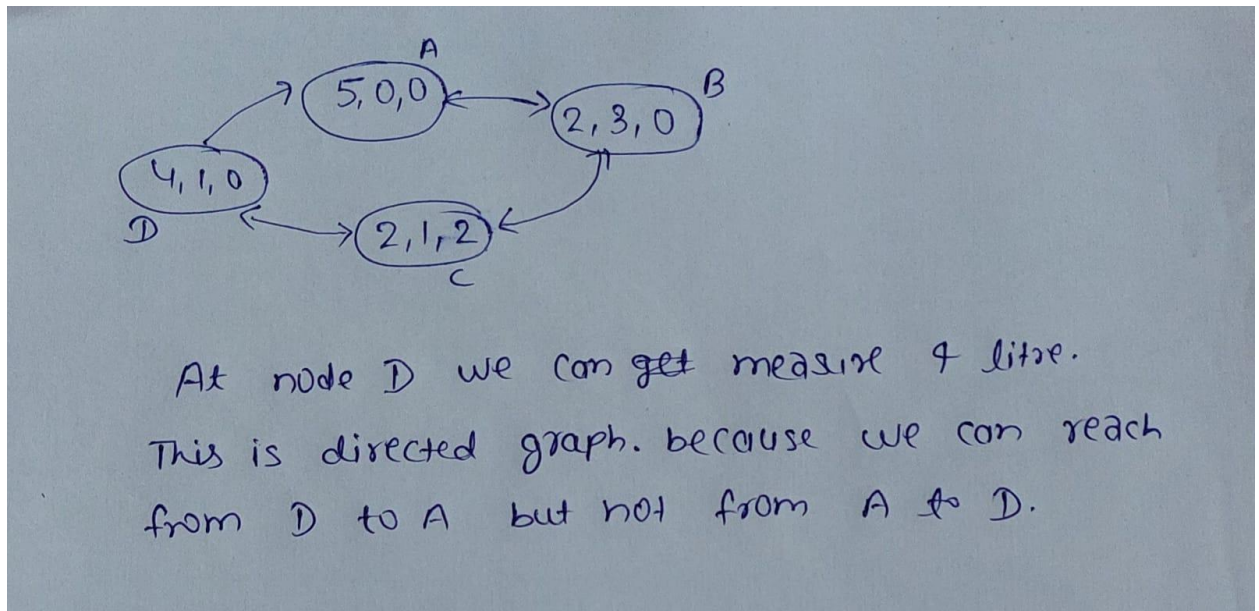 A
5,0,0
B
2,3,0
4,1,0
D
2,1,2
C
At node D we can get measire 4 litre.
This is directed graph. because we can reach
from D to A but not from A to D.